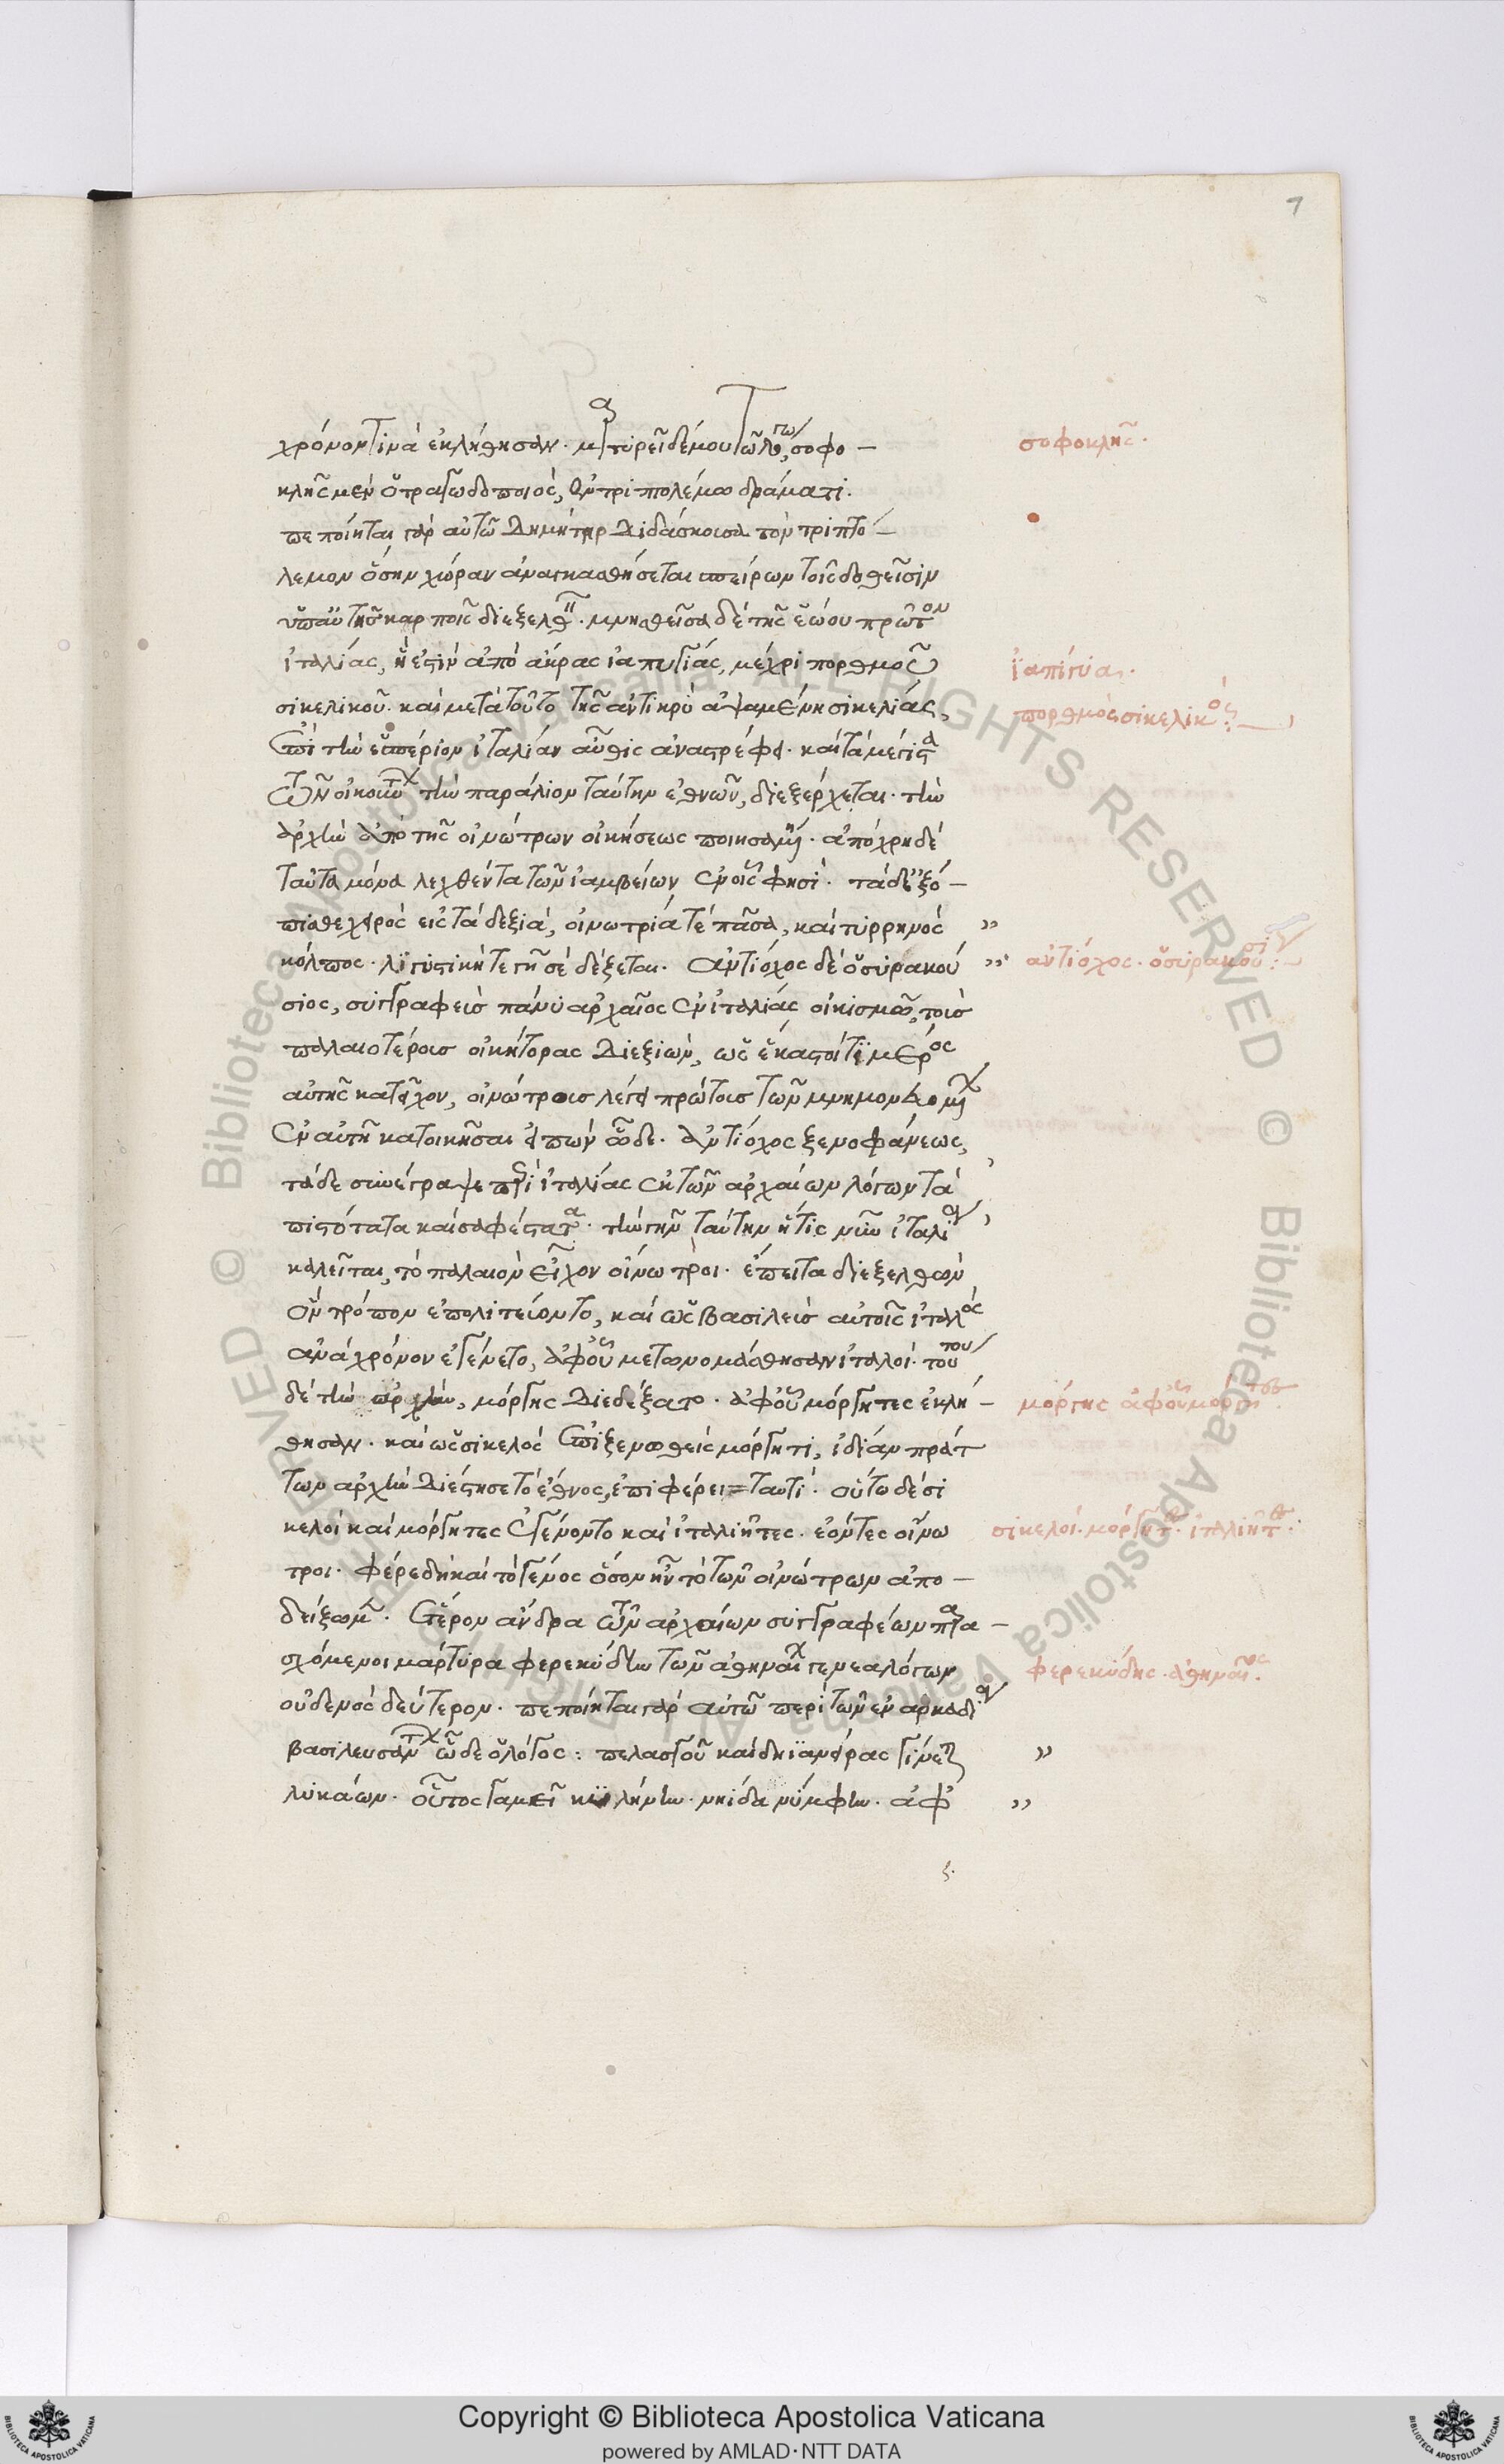 1
χρόνον τινὰ ἐκλήθησαν. μαρτυρεῖ δέ μου τῶ λόγω, σοφο–
κλῆς μὲν ὁ τραγωδοποιὸς, ἐν τριπτολέμω δράματι.
πεποίηται γὰρ αὐτῶ δημήτηρ διδάσκουσα τὸν τριπτό–
λεμον ὅσην χώραν ἀναγκασθήσεται σπείρων τοῖς δοθεῖσιν
ὑπ' αὐτῆς καρποῖς διεξελθεῖν. μνησθεῖσα δὲ τῆς ἑώου πρῶτον
ἰταλίας, ἥ ἐστιν ἀπὸ ἄκρας ἰαπυγίας, μέχρι πορθμοῦ
σικελικοῦ. καὶ μετὰ τοῦτο τῆς ἀντικρὺ ἁψαμένη σικελίας,
ἐπὶ τὴν ἑσπέριον ἰταλίαν αὖθις ἀναστρέφει. καὶ τὰ μέγιστα
τῶν οἰκούντων τὴν παράλιον ταύτην ἐθνῶν, διεξέρχεται. τὴν
ἀρχὴν ἀπὸ τῆς οἰνώτρων οἰκήσεως ποιησαμένη. ἀπόχρη δὲ
ταῦτα μόνα λεχθέντα τῶν ἰαμβείων ἐν οἷς φησὶ. τὰ δ' ἐξό–
πισθε χειρὸς εἰς τὰ δεξιὰ, οἰνωτρία τὲ πᾶσα, καὶ τυρρηνὸς „
κόλπος. λιγυστικήτε γῆ σὲ δέξεται. ἀντίοχος δὲ ὁ συρακού „
σιος, συγγραφεὺς πάνυ ἀρχαῖος ἐν ἰταλίας οἰκισμῶ, τοὺς
παλαιοτέρους οἰκήτορας διεξιὼν, ὡς ἕκαστοί τι μέρος
αὐτῆς κατεῖχον, οἰνώτρους λέγει πρώτους τῶν μνημονευομένων
ἐν αὐτῆ κατοικῆσαι εἰπὼν ὧδε. ἀντίοχος ξενοφάνεως,
τάδε συνέγραψε περὶ ἰταλίας ἐκ τῶν ἀρχαίων λόγων τὰ
πιστότατα καὶ σαφέστατα. τὴν γῆν ταύτην ἥτις νῦν ἰταλία
καλεῖται, τὸ παλαιὸν εἶχον οἴνωτροι. ἔπειτα διεξελθὼν
ὃν τρόπον ἐπολιτεύοντο, καὶ ὡς βασιλεὺς αὐτοῖς ἰταλὸς
ἀνὰ χρόνον ἐγένετο, ἀφ' οὗ μετωνομάσθησαν ἰταλοί. τούτου
δὲ τὴν ἀρχὴν, μόργης διεδέξατο. ἀφ' οὗ μόργητες ἐκλή–
θησαν. καὶ ὡς σικελὸς ἐπιξενωθεὶς μόργητι, ἰδίαν πράτ
των ἀρχὴν διέστησε τὸ ἔθνος, ἐπιφέρει ταυτί. οὕτω δὲ σι
κελοὶ καὶ μόργητες ἐγένοντο καὶ ἰταλιῆτες. ἐόντες οἴνω
τροι. φέρε δὴ καὶ τὸ γένος ὅσον ἦν τὸ τῶν οἰνώτρων ἀπο–
δείξωμεν. ἕτερον ἄνδρα τῶν ἀρχαίων συγγραφέων παρα–
σχόμενοι μάρτυρα φερεκύδην τῶν ἀθηναίων γενεαλόγων
οὐδενὸς δεύτερον. πεποίηται γὰρ αὐτῶ περὶ τῶν ἐν ἀρκαδία
βασιλευσάντων ὧδε ὁ λόγος: πελασγοῦ καὶ δηϊανείρας γίνεται „
λυκάων. οὗτος γαμεῖ κυλλήνην. νηίδα νύμφην. ἀφ' „
σοφοκλῆς.
ἰαπιγία.
πορθμὸς σικελικὸς:
ἀντίοχος. ὁ συρακούσιος:
μόργης ἀφ' οὗ μόργητες.
σικελοί. μόργητες. ἰταλιῆτες.
φερεκύδης. ἀθηναῖος:
Copyright © Biblioteca Apostolica Vaticana
powered by AMLAD·NTT DATA